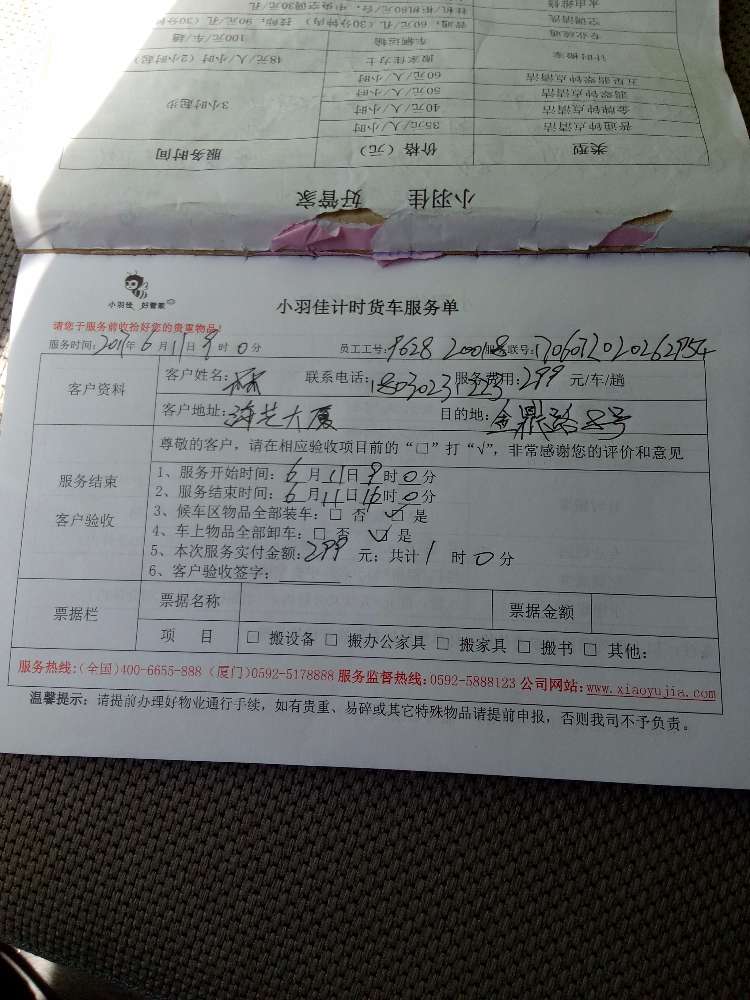 水电维修
挂机/柜机80元/台，中央空调30元/
空调清洗
普通，60元/孔（30分钟内） 技师，90元/孔（30分
专业疏通
车辆运输 100元/车/趟
计时搬家 搬家佳力士 48元/人/小时（2小时起）
五星翡翠钟点清洁 60元/人/小时
翡翠钟点清洁 50元/人/小时
金牌钟点清洁 40元/人/小时 3小时起步
普通钟点清洁 35元/人/小时
类型 价格（元） 服务时间
小羽佳 好管家
小羽佳 好管家
小羽佳计时货车服务单
请您于服务前收拾好您的贵重物品！
服务时间：2017年6月11日9时0分 员工工号：9628 20018 服务联号：
客户资料 客户姓名：林 联系电话：18030231223 服务费用：299 元/车/趟
客户地址：海芒大厦 目的地：金鼎路8号
尊敬的客户，请在相应验收项目前的“□”打“√”，非常感谢您的评价和意见
服务结束
客户验收
1、服务开始时间：6月11日9时0分
2、服务结束时间：6月11日16时0分
3、候车区物品全部装车：□ 否 ☑ 是
4、车上物品全部卸车：□ 否 ☑ 是
5、本次服务实付金额：299 元；共计1时0分
6、客户验收签字：
票据栏 票据名称 票据金额
项 目 □ 搬设备 □ 搬办公家具 □ 搬家具 □ 搬书 □ 其他：
服务热线：（全国）400-6655-888（厦门）0592-5178888 服务监督热线：0592-5888123 公司网站：www.xiaoyujia.com
温馨提示：请提前办理好物业通行手续，如有贵重、易碎或其它特殊物品请提前申报，否则我司不予负责。